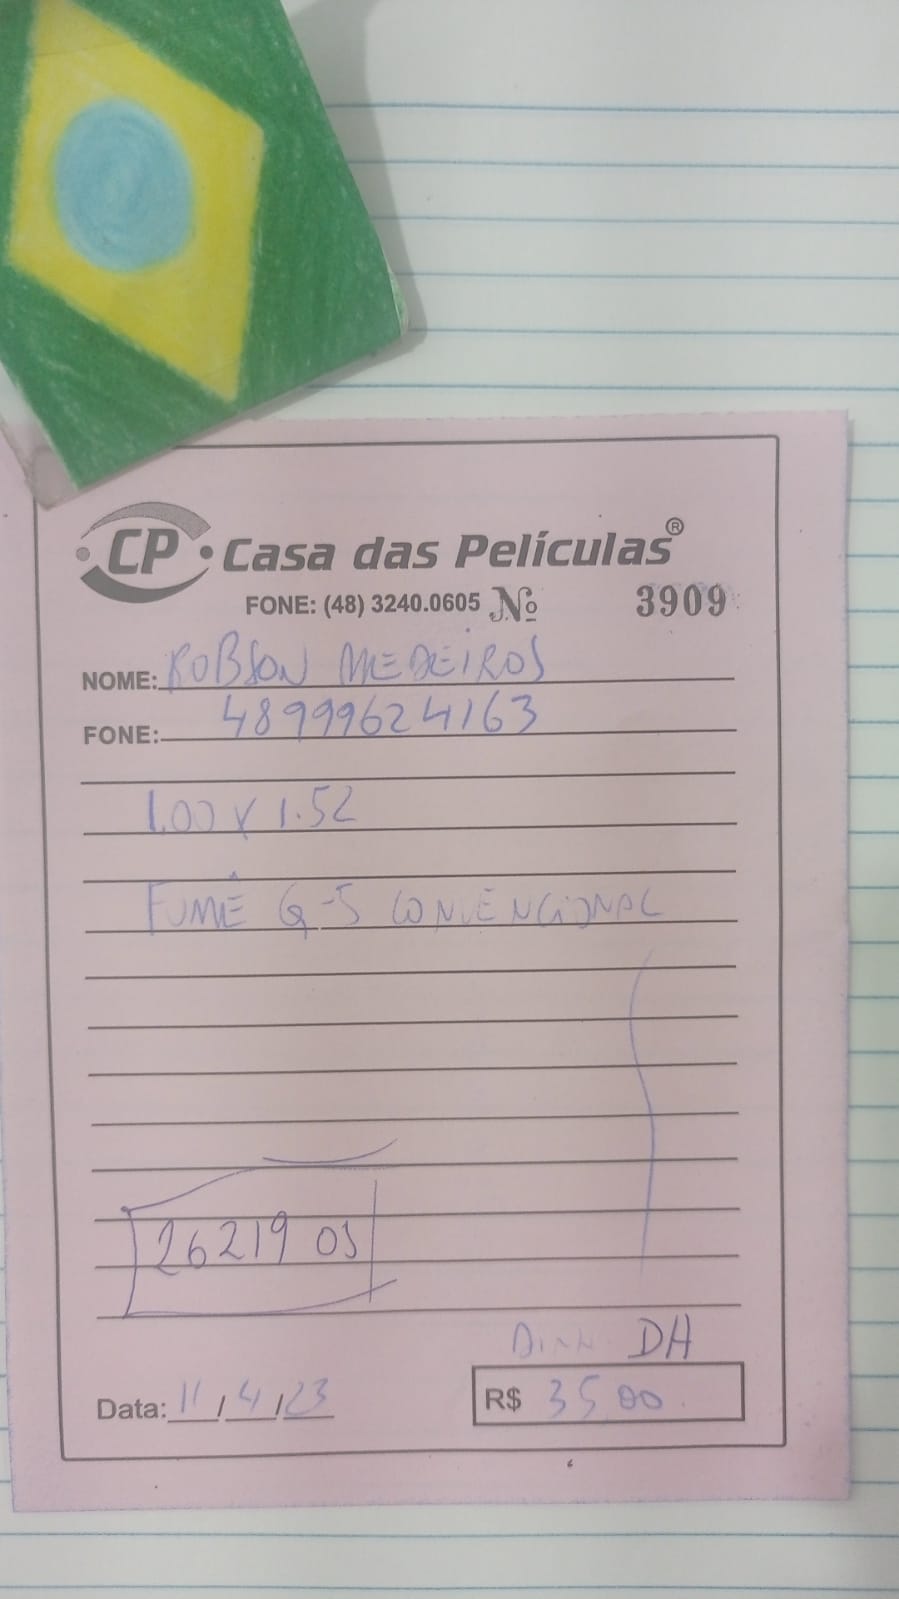 CP Casa das Películas®
FONE: (48) 3240.0605 Nº 3909
NOME: ROBSON MEDEIROS
FONE: 48999624163
1.00 X 1.52
FUMÊ G-5 CONVENCIONAL
26219 OS
DINH DH
Data: 11/4/23 R$ 35 00